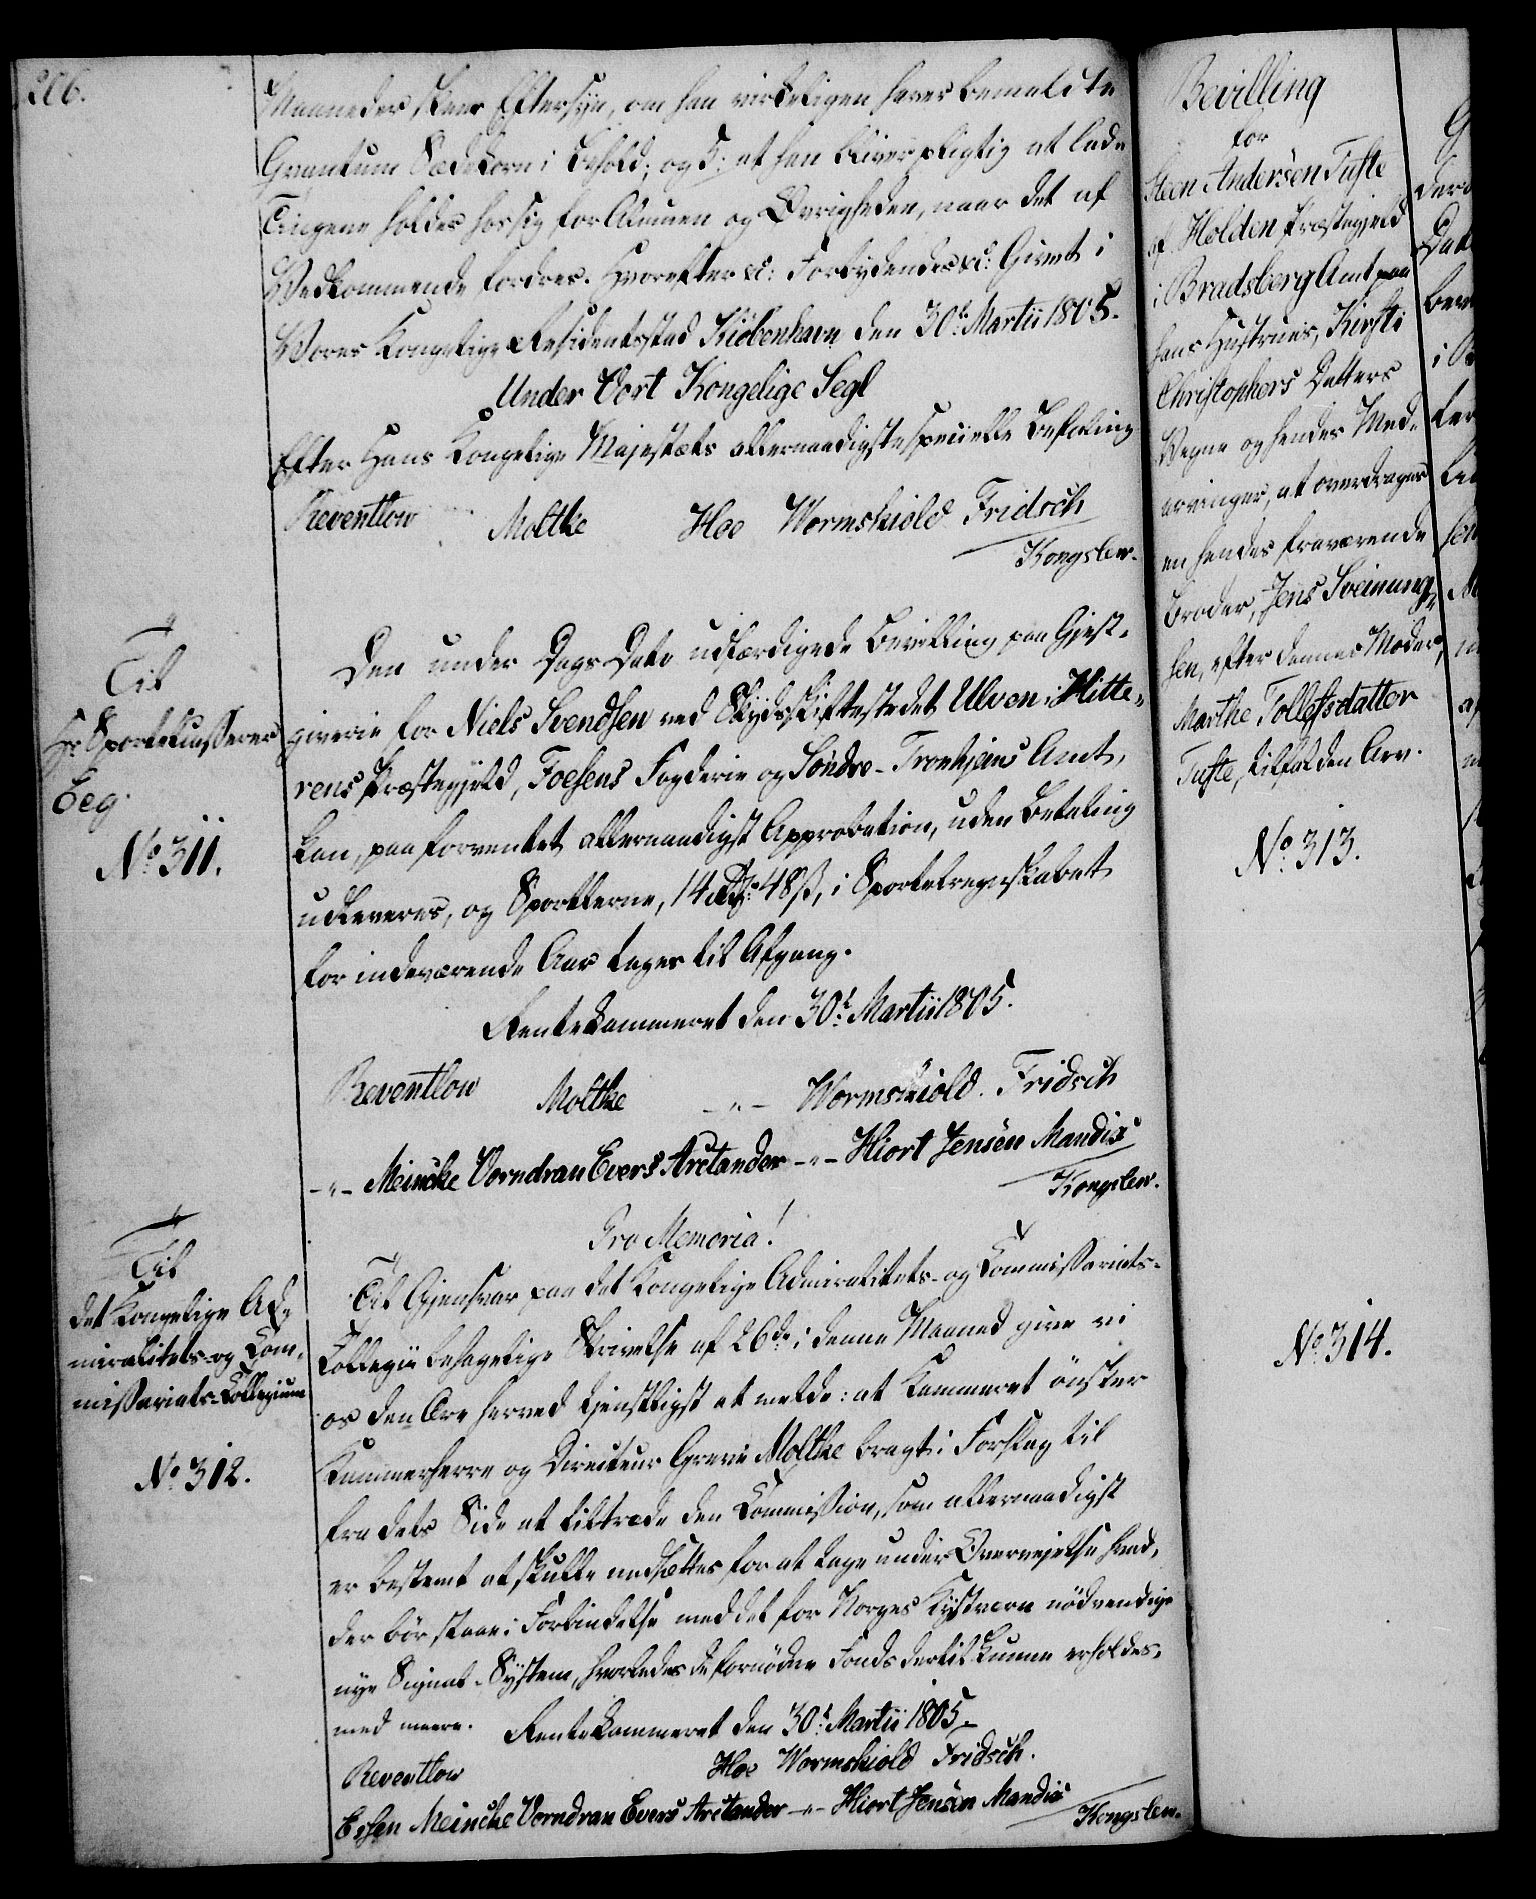 206.
Maaneders skeer Eftersyn, om han virkeligen haver bemeldte
Qvantum Sædekorn i Behold; og 5: at han bliver pligtig at lade
Tingene holdes hos sig for Almuen og Øvrigheden, naar det af
Vedkommende fordres. Hvorefter &c: Forbydendes &c: Givet i
Vores Kongelige Residentsstad Kiöbenhavn den 30te Martii 1805.
Under Vort Kongelige Segl
Efter Hans Kongelige Majestæts allernaadigste specielle Befaling
Reventlow Moltke Hoe Wormskiold Fridsch
Kongslew.
Til
Hr. Sportelkasserer
Beg
No. 311.
Den under Dags Dato udfærdigede Bevilling paa Gjest-
giverie for Niels Svendsen ved Skydsskiftestedet Ulven i Hitte-
rens Præstegjeld, Foesens Fogderie og Söndre-Tronhjems Amt,
kan, paa forventet allernaadigst Approbation, uden Betaling
udleveres, og Sportlerne, 14 Rd. 48 ß, i Sportelregnskabet
for indeværende Aar tages til Afgang.
Rentekammeret den 30te Martii 1805.
Reventlow Moltke -"- Wormskiold. Fridsch
-"- Meincke Vorndran Evers Arctander -"- Hiort Jensen Mandix
Kongslew.
Til
det Kongelige Ad-
miralitets- og Com-
missariats-Collegium
No. 312.
Pro Memoria!
Til Gjensvar paa det Kongelige Admiralitets- og Commissariats-
Collegii behagelige Skrivelse af 26de i denne Maaned give vi
os den Ære herved tjenstligst at melde: at Kammeret önsker
Kammerherre og Directeur Greve Moltke bragt i Forslag til
fra dets Side at tiltræde den Commission, som allernaadigst
er bestemt at skulle nedsættes for at tage under Overvejelse hvad,
der bör staae i Forbindelse med det for Norges Kystværn nödvendige
nye Signal-System, hvorledes de fornödne Fonds dertil kunne erholdes,
med meere. Rentekammeret den 30te Martii 1805.
Reventlow Hoe Wormskiold Fridsch.
Meincke Vorndran Evers Arctander -"- Hiort Jensen Mandix
Kongslew.
Bevilling
for
Steen Andersen Tufte
af Holden Præstegjeld
i Bradsberg Amt paa
hans Hustrues, Kirsti
Christophers Datters
Vegne og hendes Med-
arvinger, at overdrages
en hendes fraværende
Broder, Jens Sveinung-
sen, efter dennes Moder,
Marthe Tollefsdatter
Tufte, tilfalden Arv.
No. 313.
No. 314.